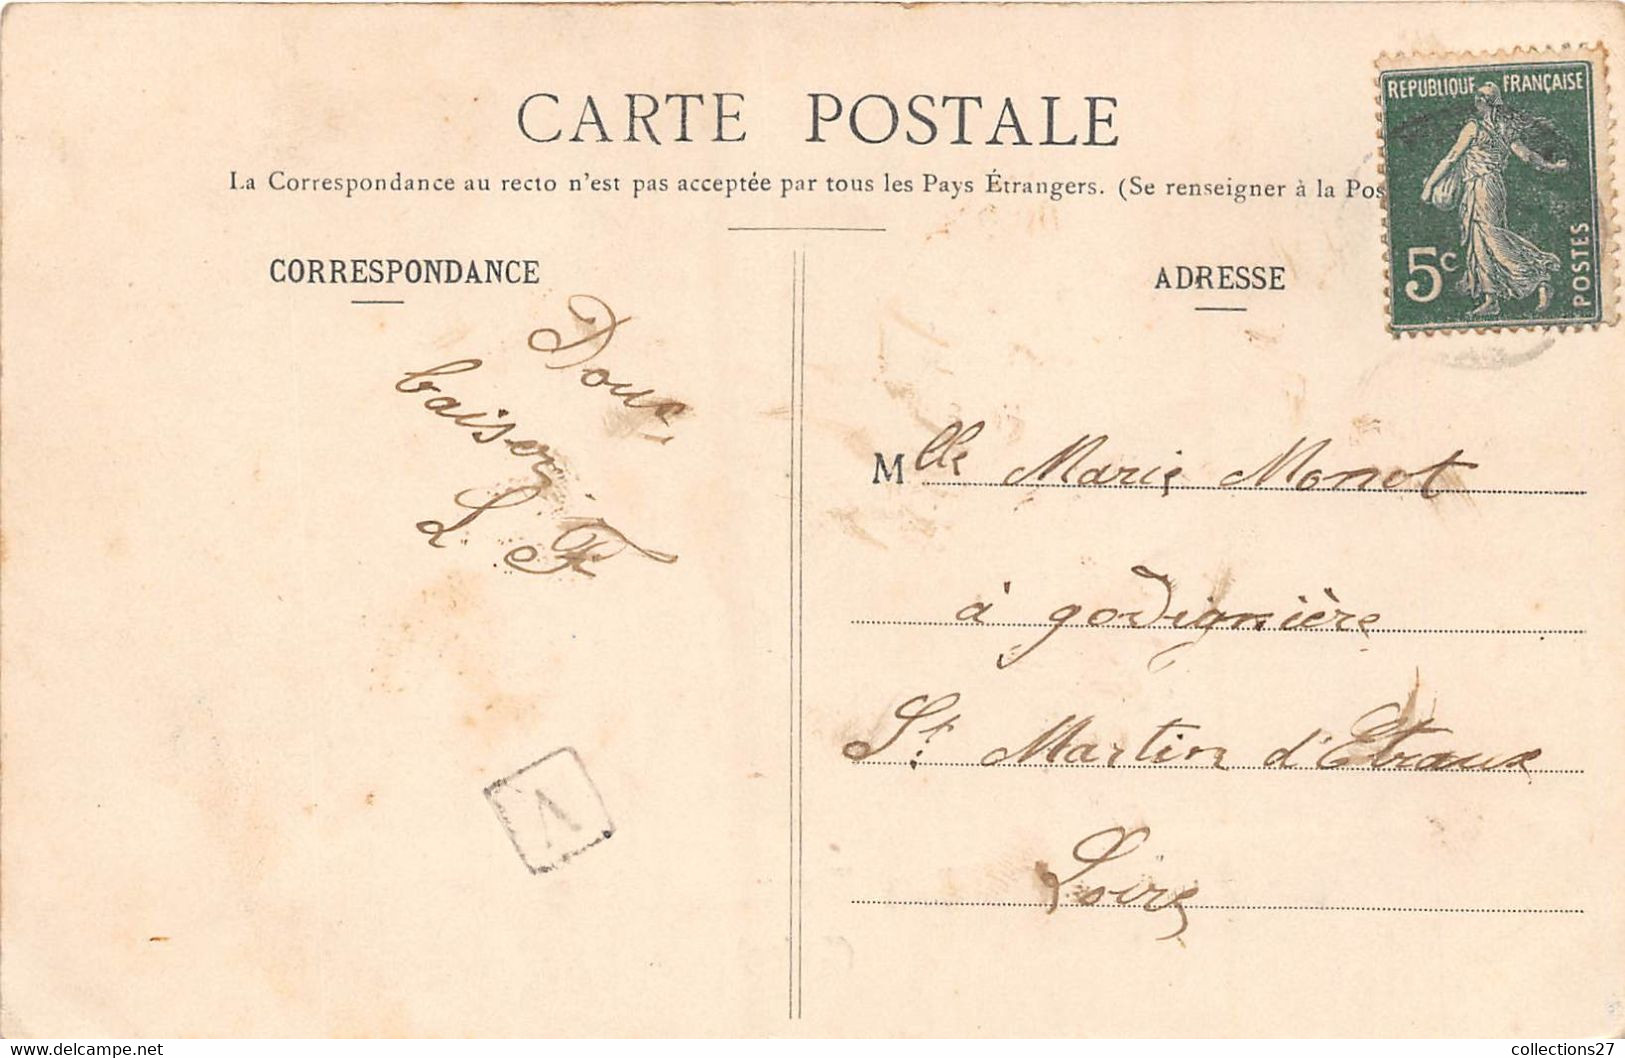 CARTE POSTALE
La Correspondance au recto n'est pas acceptée par tous les Pays Étrangers. (Se renseigner à la Pos
REPUBLIQUE FRANÇAISE
5c
POSTES
CORRESPONDANCE
Doux
baiser
L. F
V
ADRESSE
Mlle Marie Monot
à godignière
St. Martin d'Etraux
Loire
delcampe.net
collections27